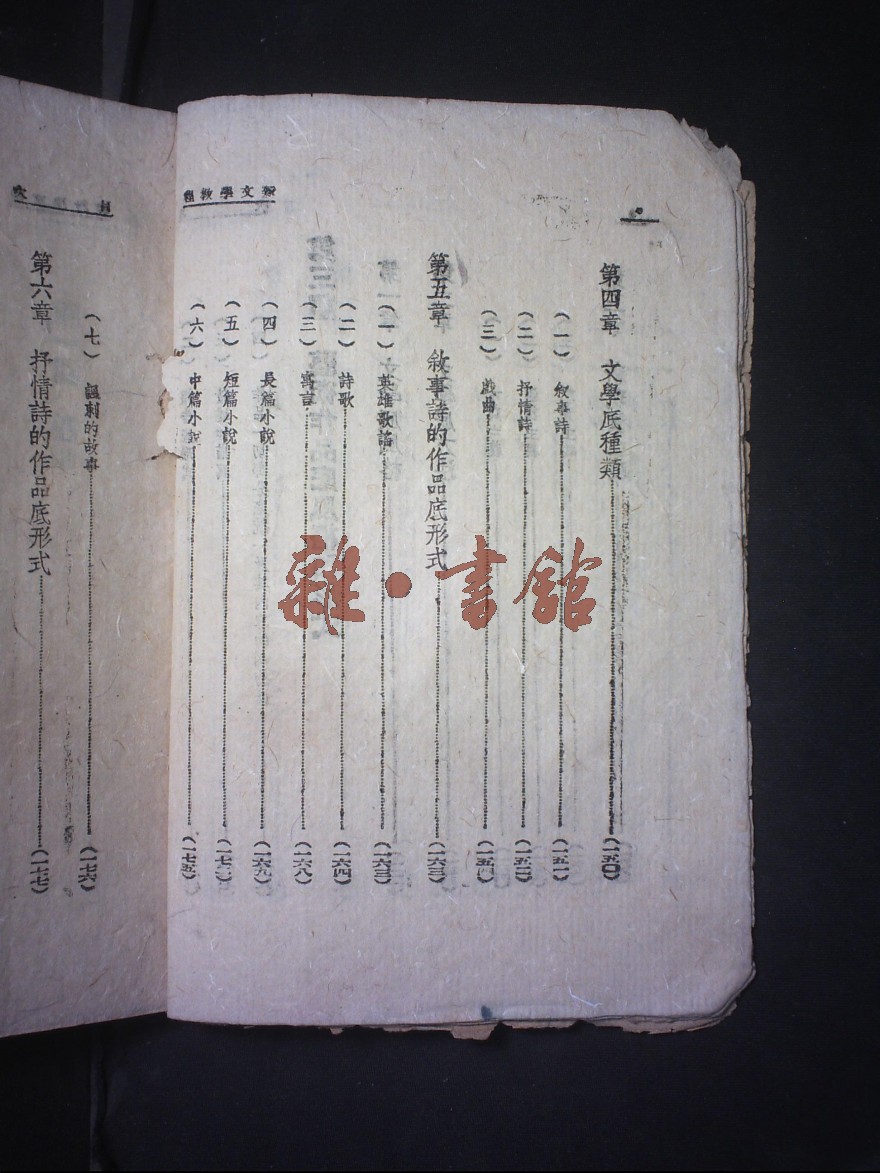 新文學教程
第四章　文學底種類……（一五〇）
（一）敘事詩……（一五一）
（二）抒情詩……（一五二）
（三）戲曲……（一五四）
第五章　敘事詩的作品底形式……（一六三）
（一）英雄歌謠……（一六三）
（二）詩歌……（一六四）
（三）寓言……（一六八）
（四）長篇小說……（一六九）
（五）短篇小說……（一七二）
（六）中篇小說……（一七五）
（七）諷刺的故事……（一七六）
第六章　抒情詩的作品底形式……（一七七）
雜·書館